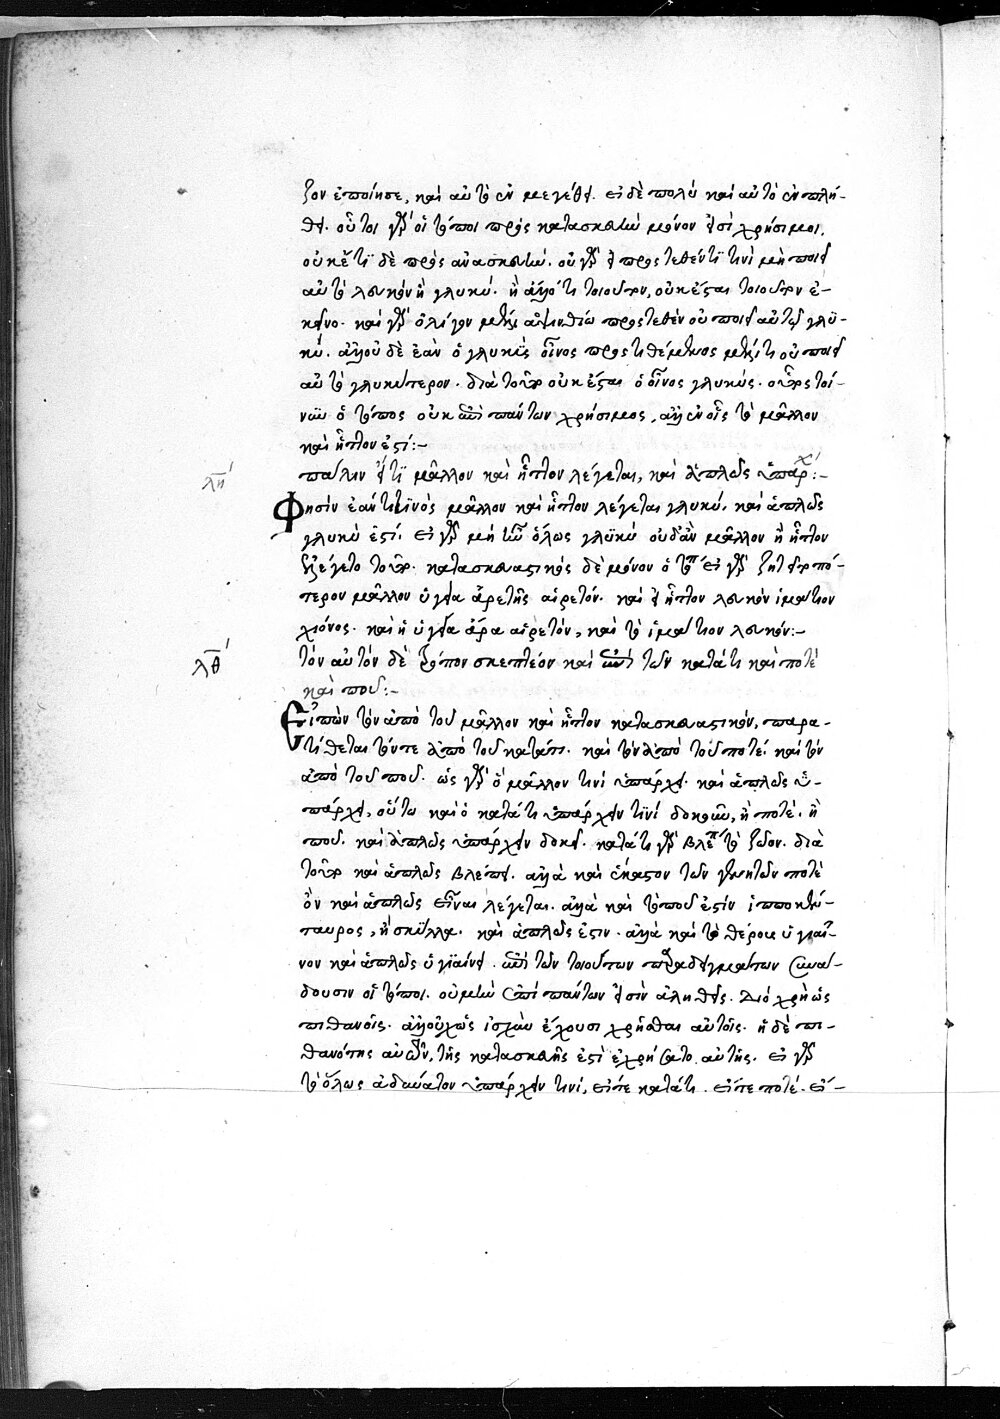 ζον ἐποίησε, καὶ αὐτὸ ἐν μεγέθει. εἰ δὲ πολύ καὶ αὐτὸ ἐν πλή-
θει. οὗτοι γὰρ οἱ τόποι πρὸς κατασκευὴν μόνον εἰσὶ χρήσιμοι,
οὐκέτι δὲ πρὸς ἀνασκευήν. οὐ γὰρ εἰ προστεθέν τι τινὶ μὴ ποιεῖ
αὐτὸ λευκὸν ἢ γλυκύ. ἢ ἄλλό τι τοιοῦτον, οὐκ ἔσται τοιοῦτον ἐ-
κεῖνο. καὶ γὰρ ὀλίγον μέλι ἀψινθίῳ προστεθὲν οὐ ποιεῖ αὐτὸ γλυ-
κύ. ἀλλ' οὐδὲ ἐὰν ὁ γλυκὺς οἶνος προστιθέμενος μέλιτι οὐ ποιεῖ
αὐτὸ γλυκύτερον. διὰ τοῦτο οὐκ ἔσται ὁ οἶνος γλυκύς. οὗτος τοί-
νυν ὁ τόπος οὐκ ἐπὶ πάντων χρήσιμος, ἀλλ' ἐν οἷς τὸ μᾶλλον
καὶ ἧττον ἐστί:-
λη΄ πάλιν εἴ τι μᾶλλον καὶ ἧττον λέγεται, καὶ ἁπλῶς ὑπάρχ:-
Φησὶν ἐάν τι τινὸς μᾶλλον καὶ ἧττον λέγεται γλυκύ. καὶ ἁπλῶς
γλυκύ ἐστί. εἰ γὰρ μὴ ἦν ὅλως γλυκύ οὐδ' ἂν μᾶλλον ἢ ἧττον
ἐλέγετο τοῦτο. κατασκευαστικὸς δὲ μόνον ὁ τόπ εἰ γὰρ ζητεῖται πό-
τερον μᾶλλον ὑγεία ἀρετῆς αἱρετόν. καὶ εἰ ἧττον λευκὸν ἱμάτιον
χιόνος. καὶ ἡ ὑγεία ἄρα αἱρετόν, καὶ τὸ ἱμάτιον λευκόν:-
λθ΄ τὸν αὐτὸν δὲ τρόπον σκεπτέον καὶ ἐπὶ τῶν κατά τι καὶ ποτὲ
καὶ ποῦ:-
Εἰπὼν τὸν ἀπὸ τοῦ μᾶλλον καὶ ἧττον κατασκευαστικόν, παρα-
τίθεται τόν τε ἀπὸ τοῦ κατά τι. καὶ τὸν ἀπὸ τοῦ ποτέ. καὶ τὸν
ἀπὸ τοῦ ποῦ. ὡς γὰρ ὃ μᾶλλον τινὶ ὑπάρχει. καὶ ἁπλῶς ὑ-
πάρχει, οὕτω καὶ ὁ κατά τι ὑπάρχειν τινὶ δοκοῦν, ἢ ποτέ. ἢ
ποῦ. καὶ ἁπλῶς ὑπάρχειν δοκεῖ. κατά τι γὰρ βλέπ τὸ ζῶον. διὰ
τοῦτο καὶ ἁπλῶς βλέπει. ἀλλὰ καὶ ἕκαστον τῶν γεννητῶν ποτὲ
ὂν καὶ ἁπλῶς εἶναι λέγεται. ἀλλὰ καὶ τὸ ποῦ ἐστὶν ἱπποκέν-
ταυρος, ἢ σκύλλα. καὶ ἁπλῶς ἐστιν. ἀλλὰ καὶ τὸ θέρους ὑγιαῖ-
νον καὶ ἁπλῶς ὑγιαίνει. ἐπὶ τῶν τοιούτων παραδειγμάτων συνᾴ-
δουσιν οἱ τόποι. οὐ μὴν ἐπὶ πάντων εἰσὶν ἀληθεῖς. Διὸ χρὴ ὡς
πιθανοῖς. ἀλλ' οὐχ ὡς ἰσχὺν ἔχουσι χρῆσθαι αὐτοῖς. ἡ δὲ πι-
θανότης αὐτῶν, τῆς κατασκευῆς ἐστὶ ἐχρήσατο αὐτῆς. εἰ γὰρ
τὸ ὅλως ἀδύνατον ὑπάρχειν τινί, εἴτε κατά τι. εἴτε ποτέ. εἴ-